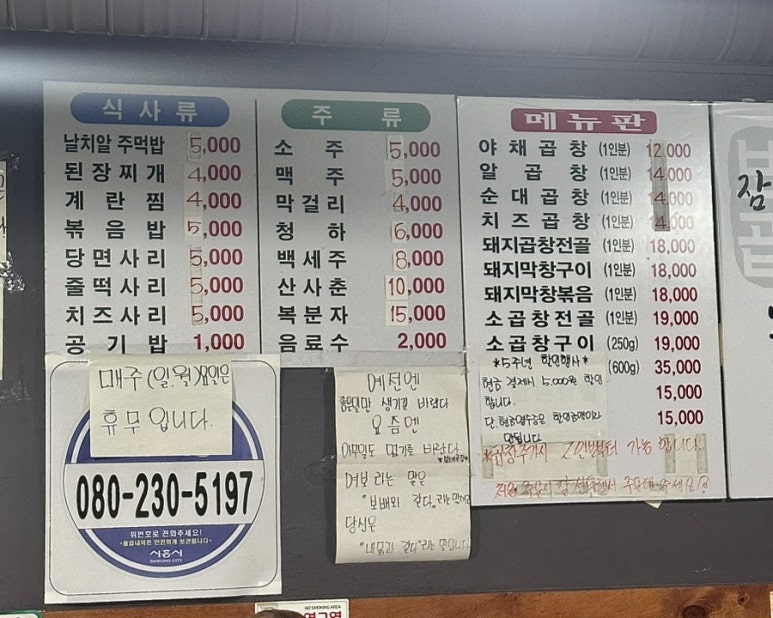 식사류
날치알 주먹밥 5,000
된장찌개 4,000
계란찜 4,000
볶음밥 5,000
당면사리 5,000
줄떡사리 5,000
치즈사리 5,000
공기밥 1,000
주류
소주 5,000
맥주 5,000
막걸리 4,000
청하 6,000
백세주 8,000
산사춘 10,000
복분자 15,000
음료수 2,000
메뉴판
야채곱창 (1인분) 12,000
알곱창 (1인분) 14,000
순대곱창 (1인분) 14,000
치즈곱창 (1인분) 14,000
돼지곱창전골 (1인분) 18,000
돼지막창구이 (1인분) 18,000
돼지막창볶음 (1인분) 18,000
소곱창전골 (1인분) 19,000
소곱창구이 (250g) 19,000
(600g) 35,000
15,000
15,000
*5주년 할인행사*
현금 결제시 5,000원 할인
합니다.
*곱창주가시 2인분부터 가능 합니다
매주 (일.월)요일은
휴무 입니다.
080-230-5197
위번호로 전화주세요!
시흥시
SIHEUNG CITY
예전엔
좋은일만 생기길 바랬다
요즘엔
아무일도 없기를 바란다
여보 라는 말은
"보배와 같다"라는 말이고
당신은
"내몸과 같다"라는 말입니다
NO SMOKING AREA
금연구역
잠